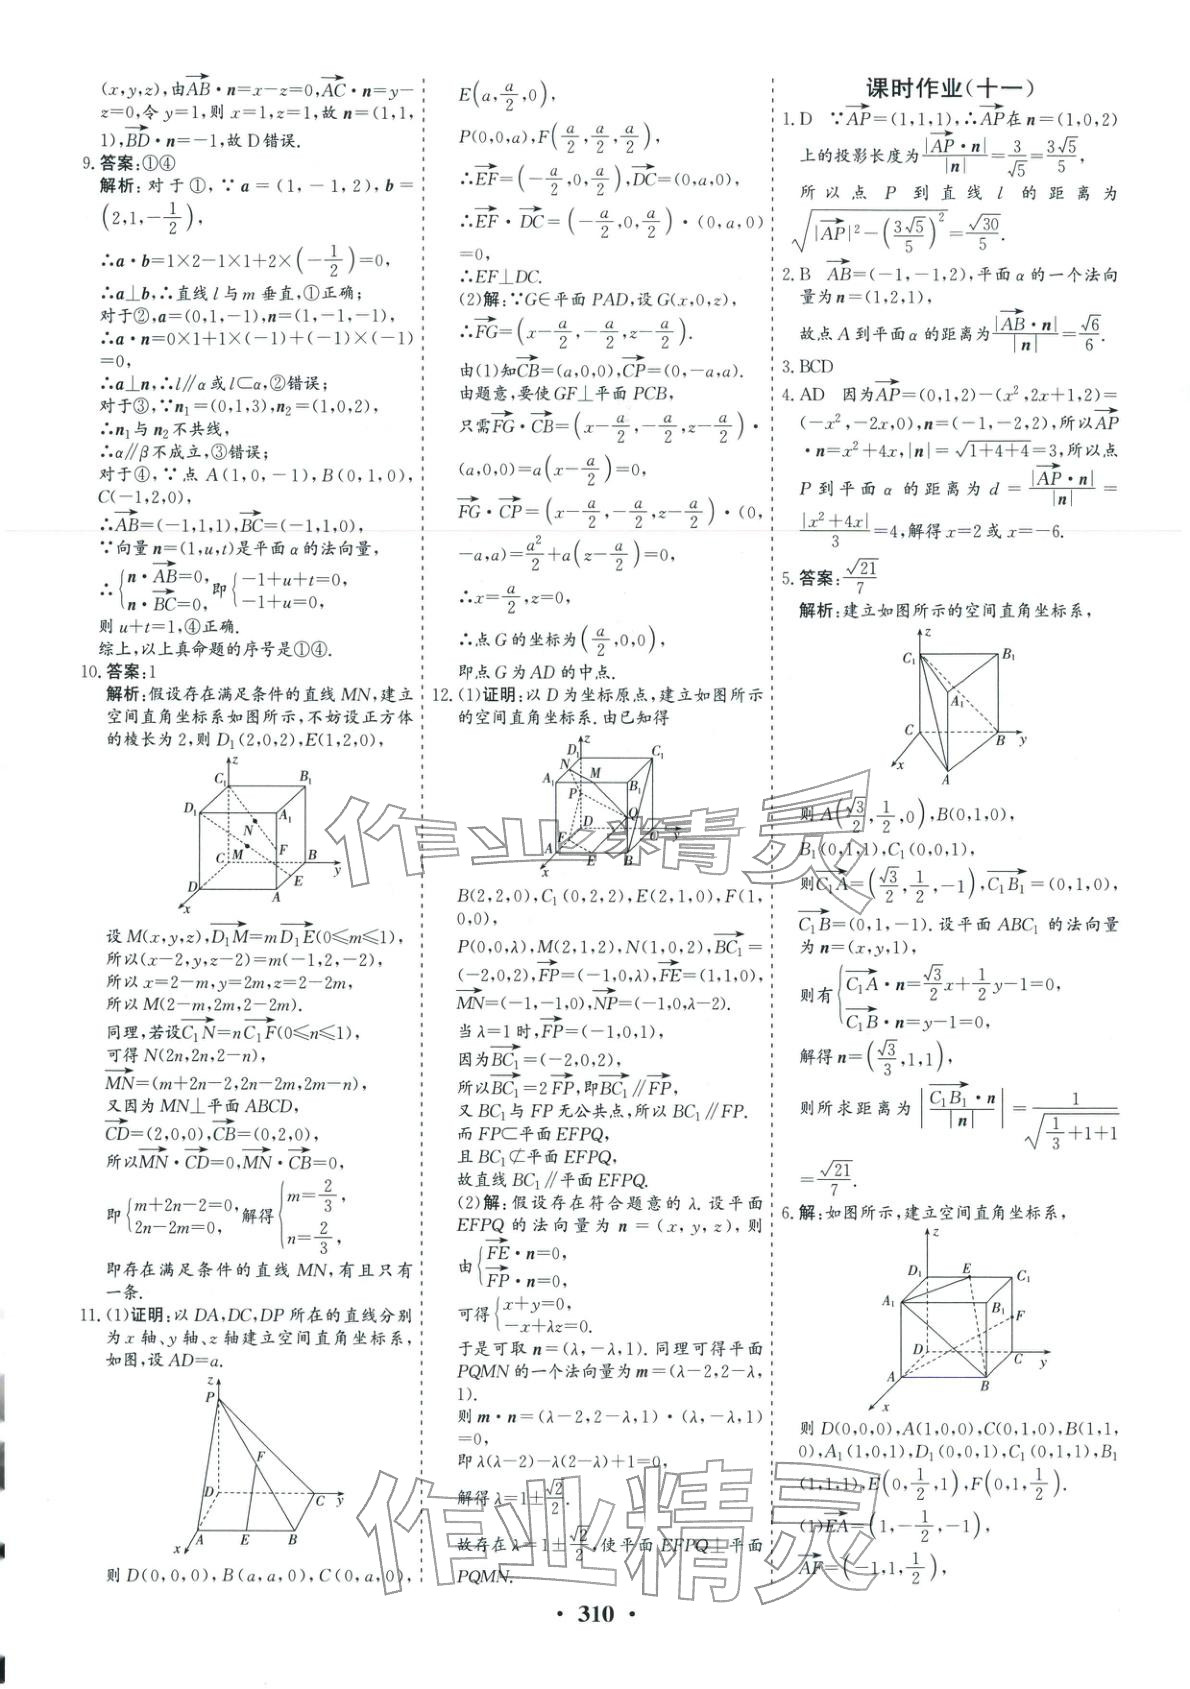 (x,y,z),由AB·n=x-z=0,AC·n=y-
z=0,令y=1,则x=1,z=1,故n=(1,1,
1),BD·n=-1,故D错误.
9.答案:①④
解析:对于①,∵a=(1,-1,2),b=
(2,1,-1/2),
∴a·b=1×2-1×1+2×(-1/2)=0,
∴a⊥b,∴直线l与m垂直,①正确;
对于②,a=(0,1,-1),n=(1,-1,-1),
∴a·n=0×1+1×(-1)+(-1)×(-1)
=0,
∴a⊥n,∴l∥α或l⊂α,②错误;
对于③,∵n₁=(0,1,3),n₂=(1,0,2),
∴n₁与n₂不共线,
∴α∥β不成立,③错误;
对于④,∵点A(1,0,-1),B(0,1,0),
C(-1,2,0),
∴AB=(-1,1,1),BC=(-1,1,0),
∵向量n=(1,u,t)是平面α的法向量,
∴{n·AB=0, n·BC=0, 即{-1+u+t=0, -1+u=0,
则u+t=1,④正确.
综上,以上真命题的序号是①④.
10.答案:1
解析:假设存在满足条件的直线MN,建立
空间直角坐标系如图所示,不妨设正方体
的棱长为2,则D₁(2,0,2),E(1,2,0),
z
C₁ B₁
D₁ A₁
N
M F
C B y
D E
x A
设M(x,y,z),D₁M=mD₁E(0≤m≤1),
所以(x-2,y,z-2)=m(-1,2,-2),
所以x=2-m,y=2m,z=2-2m,
所以M(2-m,2m,2-2m).
同理,若设C₁N=nC₁F(0≤n≤1),
可得N(2n,2n,2-n),
MN=(m+2n-2,2n-2m,2m-n),
又因为MN⊥平面ABCD,
CD=(2,0,0),CB=(0,2,0),
所以MN·CD=0,MN·CB=0,
即{m+2n-2=0, 2n-2m=0, 解得{m=2/3, n=2/3,
即存在满足条件的直线MN,有且只有
一条.
11.(1)证明:以DA,DC,DP所在的直线分别
为x轴、y轴、z轴建立空间直角坐标系,
如图,设AD=a.
z
P
F
D C y
x A E B
则D(0,0,0),B(a,a,0),C(0,a,0),
E(a,a/2,0),
P(0,0,a),F(a/2,a/2,a/2),
∴EF=(-a/2,0,a/2),DC=(0,a,0),
∴EF·DC=(-a/2,0,a/2)·(0,a,0)
=0,
∴EF⊥DC.
(2)解:∵G∈平面PAD,设G(x,0,z),
∴FG=(x-a/2,-a/2,z-a/2).
由(1)知CB=(a,0,0),CP=(0,-a,a).
由题意,要使GF⊥平面PCB,
只需FG·CB=(x-a/2,-a/2,z-a/2)·
(a,0,0)=a(x-a/2)=0,
FG·CP=(x-a/2,-a/2,z-a/2)·(0,
-a,a)=a²/2+a(z-a/2)=0,
∴x=a/2,z=0,
∴点G的坐标为(a/2,0,0),
即点G为AD的中点.
12.(1)证明:以D为坐标原点,建立如图所示
的空间直角坐标系.由已知得
z
D₁ C₁
N M
A₁ B₁
P Q
D C y
F
A E B
x
B(2,2,0),C₁(0,2,2),E(2,1,0),F(1,
0,0),
P(0,0,λ),M(2,1,2),N(1,0,2),BC₁=
(-2,0,2),FP=(-1,0,λ),FE=(1,1,0),
MN=(-1,-1,0),NP=(-1,0,λ-2).
当λ=1时,FP=(-1,0,1),
因为BC₁=(-2,0,2),
所以BC₁=2FP,即BC₁∥FP,
又BC₁与FP无公共点,所以BC₁∥FP.
而FP⊂平面EFPQ,
且BC₁⊄平面EFPQ,
故直线BC₁∥平面EFPQ.
(2)解:假设存在符合题意的λ.设平面
EFPQ的法向量为n=(x,y,z),则
由{FE·n=0, FP·n=0,
可得{x+y=0, -x+λz=0.
于是可取n=(λ,-λ,1).同理可得平面
PQMN的一个法向量为m=(λ-2,2-λ,
1).
则m·n=(λ-2,2-λ,1)·(λ,-λ,1)
=0,
即λ(λ-2)-λ(2-λ)+1=0,
解得λ=1±√2/2.
故存在λ=1±√2/2,使平面EFPQ⊥平面
PQMN.
课时作业(十一)
1.D ∵AP=(1,1,1),∴AP在n=(1,0,2)
上的投影长度为|AP·n|/|n|=3/√5=3√5/5,
所以点P到直线l的距离为
√(|AP|²-(3√5/5)²)=√30/5.
2.B AB=(-1,-1,2),平面α的一个法向
量为n=(1,2,1),
故点A到平面α的距离为|AB·n|/|n|=√6/6.
3.BCD
4.AD 因为AP=(0,1,2)-(x²,2x+1,2)=
(-x²,-2x,0),n=(-1,-2,2),所以AP
·n=x²+4x,|n|=√(1+4+4)=3,所以点
P到平面α的距离为d=|AP·n|/|n|=
|x²+4x|/3=4,解得x=2或x=-6.
5.答案:√21/7
解析:建立如图所示的空间直角坐标系,
z
C₁ B₁
A₁
C B y
x A
则A(√3/2,1/2,0),B(0,1,0),
B₁(0,1,1),C₁(0,0,1),
则C₁A=(√3/2,1/2,-1),C₁B₁=(0,1,0),
C₁B=(0,1,-1).设平面ABC₁的法向量
为n=(x,y,1),
则有{C₁A·n=√3/2x+1/2y-1=0, C₁B·n=y-1=0,
解得n=(√3/3,1,1),
则所求距离为|C₁B₁·n/|n||=1/√(1/3+1+1)
=√21/7.
6.解:如图所示,建立空间直角坐标系,
z
D₁ E C₁
A₁ B₁
F
D C y
A B
x
则D(0,0,0),A(1,0,0),C(0,1,0),B(1,1,
0),A₁(1,0,1),D₁(0,0,1),C₁(0,1,1),B₁
(1,1,1),E(0,1/2,1),F(0,1,1/2).
(1)EA=(1,-1/2,-1),
AF=(-1,1,1/2),
·310·
作业精灵
作业精灵